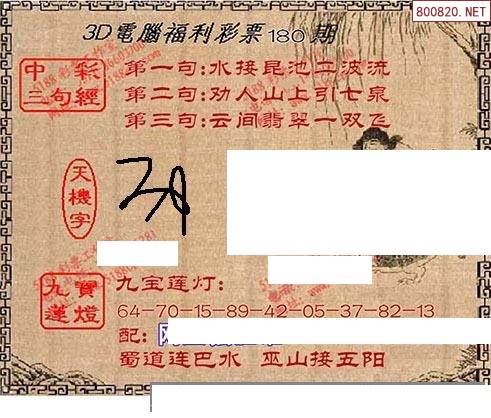 800820.NET
3D電腦福利彩票180期
中彩三句經
第一句:水接昆池二波流
第二句:劝人山上引七泉
第三句:云间翡翠一双飞
天機字
九寶蓮燈
九宝莲灯:
64-70-15-89-42-05-37-82-13
配:
蜀道连巴水 巫山接五阳